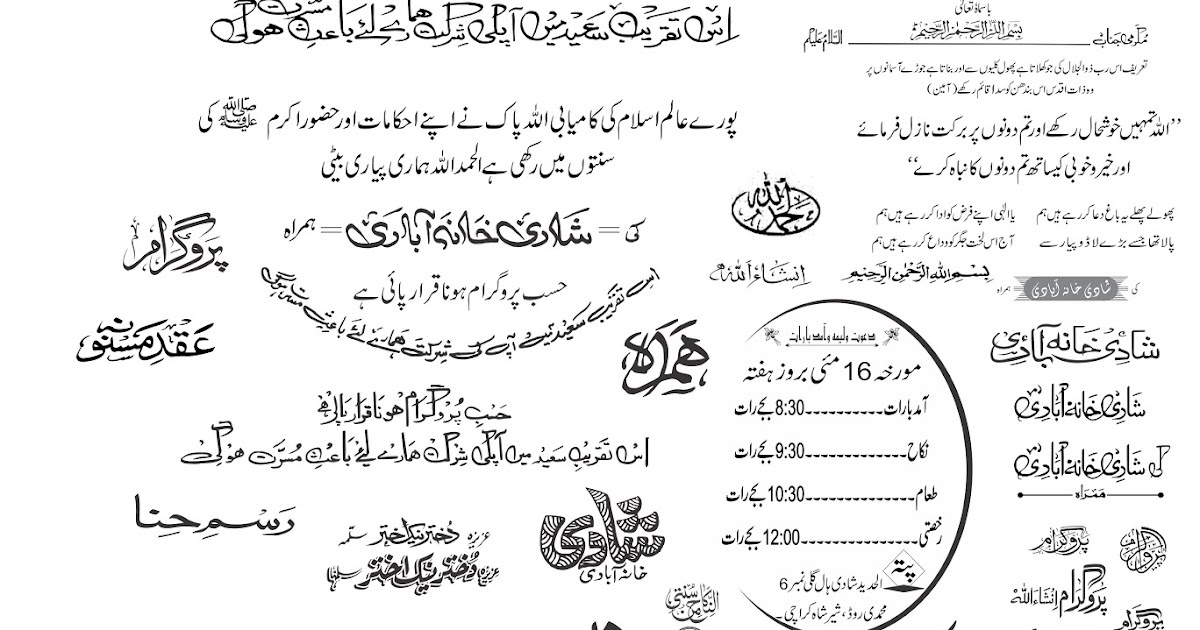 اس تقریب سعید میں آپکی شرکت ہمارے لئے باعث مسرت ہوگی
باسمہٖ تعالیٰ
بسم اللہ الرحمٰن الرحیم
مکرمی جناب ــــــــــــــــــــ السلام علیکم
تعریف اس رب ذوالجلال کی جو کھلاتا ہے پھول کلیوں سے اور بناتا ہے جوڑے آسمانوں پر
وہ ذات اقدس اس بندھن کو سدا قائم رکھے (آمین)
پورے عالم اسلام کی کامیابی اللہ پاک نے اپنے احکامات اور حضور اکرم ﷺ کی
سنتوں میں رکھی ہے الحمد اللہ ہماری پیاری بیٹی
’’اللہ تمہیں خوشحال رکھے اور تم دونوں پر برکت نازل فرمائے
اور خیر و خوبی کیساتھ تم دونوں کا نباہ کرے‘‘
الحمدللہ
پھولے پھلے یہ باغ دعا کر رہے ہیں ہم
یا الٰہی اپنے فرض کو ادا کر رہے ہیں ہم
پالا تھا جسے بڑے لاڈ و پیار سے
آج اس لخت جگر کو وداع کر رہے ہیں ہم
کی = شادی خانہ آبادی = ہمراہ
پروگرام
انشاءاللہ
بسم اللہ الرحمن الرحیم
کی شادی خانہ آبادی ہمراہ
حسب پروگرام ہونا قرار پائی ہے
اس تقریب سعید میں آپ کی شرکت ہمارے لئے باعث مسرت ہوگی
عقد مسنونہ
ہمراہ
دعوت ولیمہ و آمد بارات
مورخہ 16 مئی بروز ہفتہ
آمد بارات.........8:30 بجے رات
نکاح.............9:30 بجے رات
طعام.............10:30 بجے رات
رخصتی..............12:00 بجے رات
پتہ
الحدید شادی ہال گلی نمبر 6
محمدی روڈ، شیر شاہ کراچی۔
شادی خانہ آبادی
شادی خانہ آبادی
کی شادی خانہ آبادی
ہمراہ
حسب پروگرام ہونا قرار پائی ہے
اس تقریب سعید میں آپکی شرکت ہمارے لئے باعث مسرت ہوگی
رسم حنا
عزیزہ دختر نیک اختر سلمہ
عزیزہ دختر نیک اختر سلمہا
شادی
خانہ آبادی
النکاح من سنتی
پروگرام
پروگرام
پروگرام انشاءاللہ
پروگرام